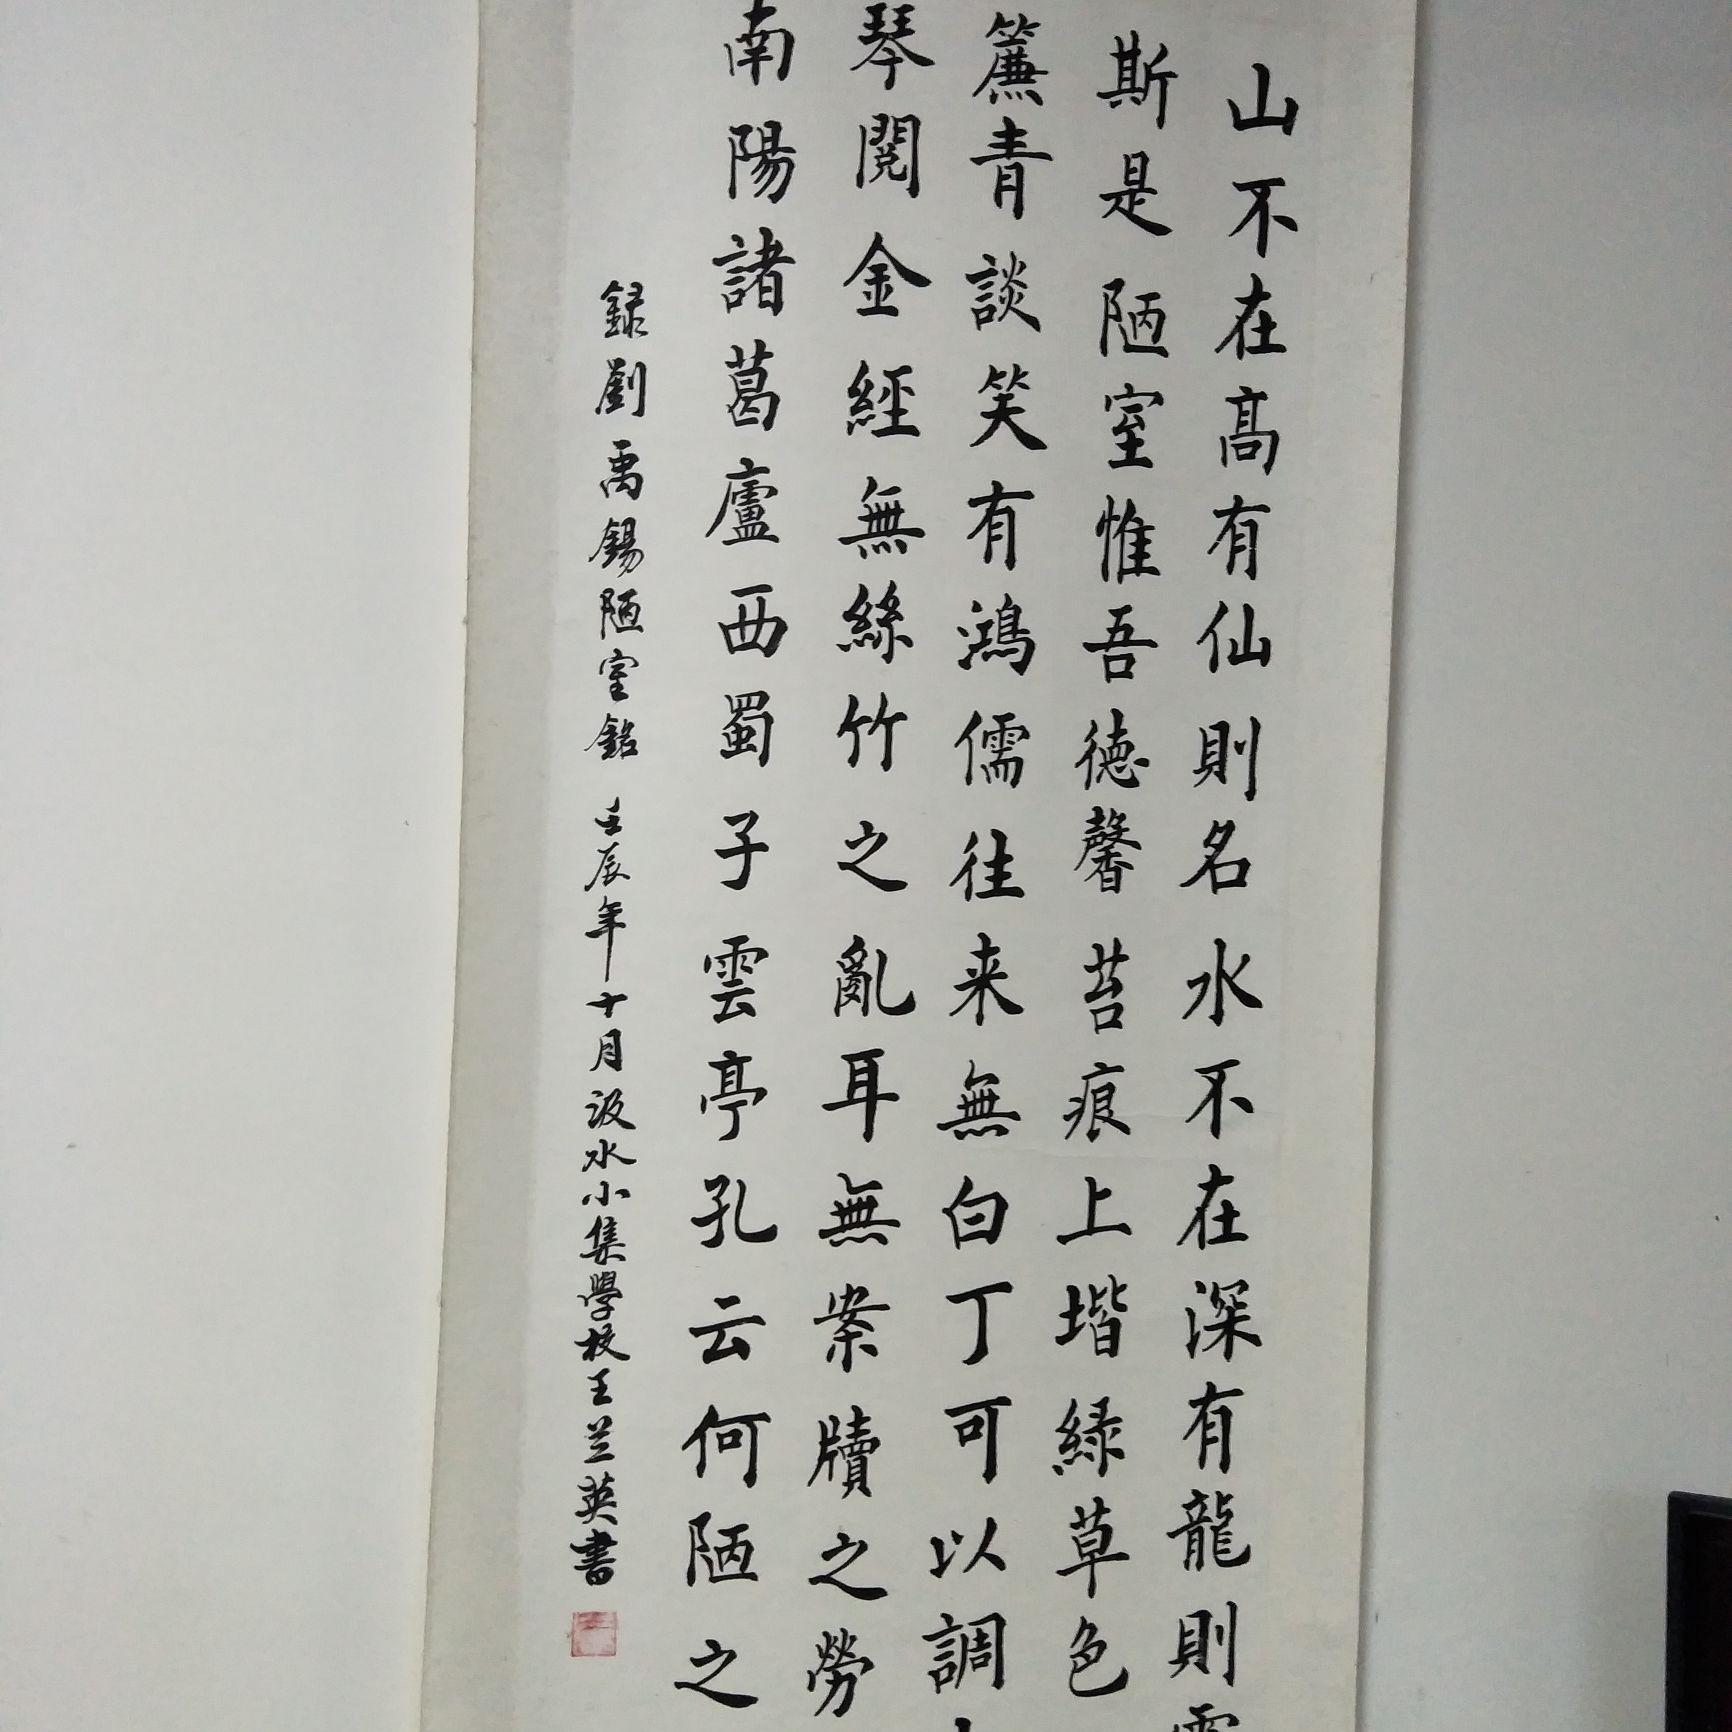 山不在高有仙則名水不在深有龍則
斯是陋室惟吾德馨苔痕上堦緑草色
簾青談笑有鴻儒往来無白丁可以調
琴閱金經無絲竹之亂耳無案牘之勞
南陽諸葛廬西蜀子雲亭孔云何陋之
録劉禹錫陋室銘 壬辰年十月汲水小集學校王兰英書